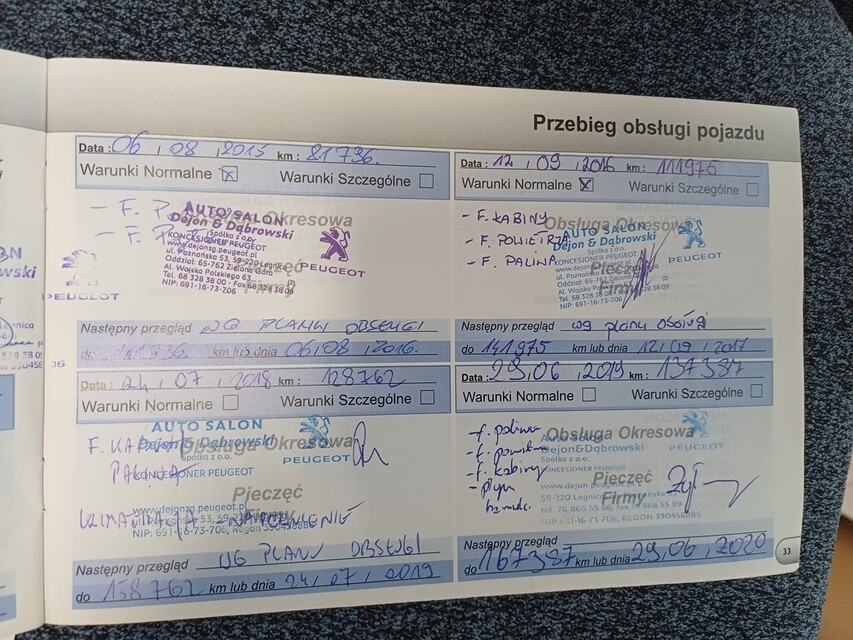 Przebieg obsługi pojazdu
Data : 06 / 08 / 2015 km : 81736.
Warunki Normalne Warunki Szczególne
- F.
AUTO SALON
Dejon & Dąbrowski
Obsługa Okresowa
- F.
Spółka z o.o.
KONCESJONER PEUGEOT
www.dejonzg.peugeot.pl
ul. Poznańska 53, 59-220 Legnica
Oddział: 65-762 Zielona Góra
Al. Wojska Polskiego 63
Tel. 68 328 38 00 - Fax 68 328 38 09
NIP: 691-16-73-706
PEUGEOT
Pieczęć
Firmy
Następny przegląd WG PLANU OBSŁUGI
do 111736. km lub dnia 06 / 08 / 2016.
Data : 12 / 09 / 2016 km : 111975
Warunki Normalne Warunki Szczególne
- F. KABINY
- F. POWIETRZA
- F. PALIWA
Obsługa Okresowa
AUTO SALON
Dejon & Dąbrowski
Spółka z o.o.
KONCESJONER PEUGEOT
PEUGEOT
Pieczęć
Firmy
Następny przegląd wg planu obsługi
do 141975 km lub dnia 12 / 09 / 2017
Data : 24 / 07 / 2018 km : 128762
Warunki Normalne Warunki Szczególne
F. KABINY
PALIWA
AUTO SALON
Dejon & Dąbrowski
Obsługa Okresowa
Spółka z o.o.
KONCESJONER PEUGEOT
PEUGEOT
Pieczęć
www.dejonzg.peugeot.pl
KLIMATYZACJA - NAPEŁNIENIE
NIP: 691-16-73-706, REGON
Następny przegląd WG PLANU OBSŁUGI
do 158762 km lub dnia 24 / 07 / 2019
Data : 29 / 06 / 2019 km : 137387
Warunki Normalne Warunki Szczególne
- f. paliwa
- f. powietrza
- f. kabiny
- płyn
hamulc.
Obsługa Okresowa
Auto Salon
Dejon & Dąbrowski
Spółka z o.o.
KONCESJONER PEUGEOT
Pieczęć
Firmy
www.dejon.peugeot.pl
59-220 Legnica
tel. 76 866 55 66, fax 76 866 55 99
NIP 691-16-73-706, REGON 390458886
Następny przegląd
do 167387 km lub dnia 29 / 06 / 2020
33